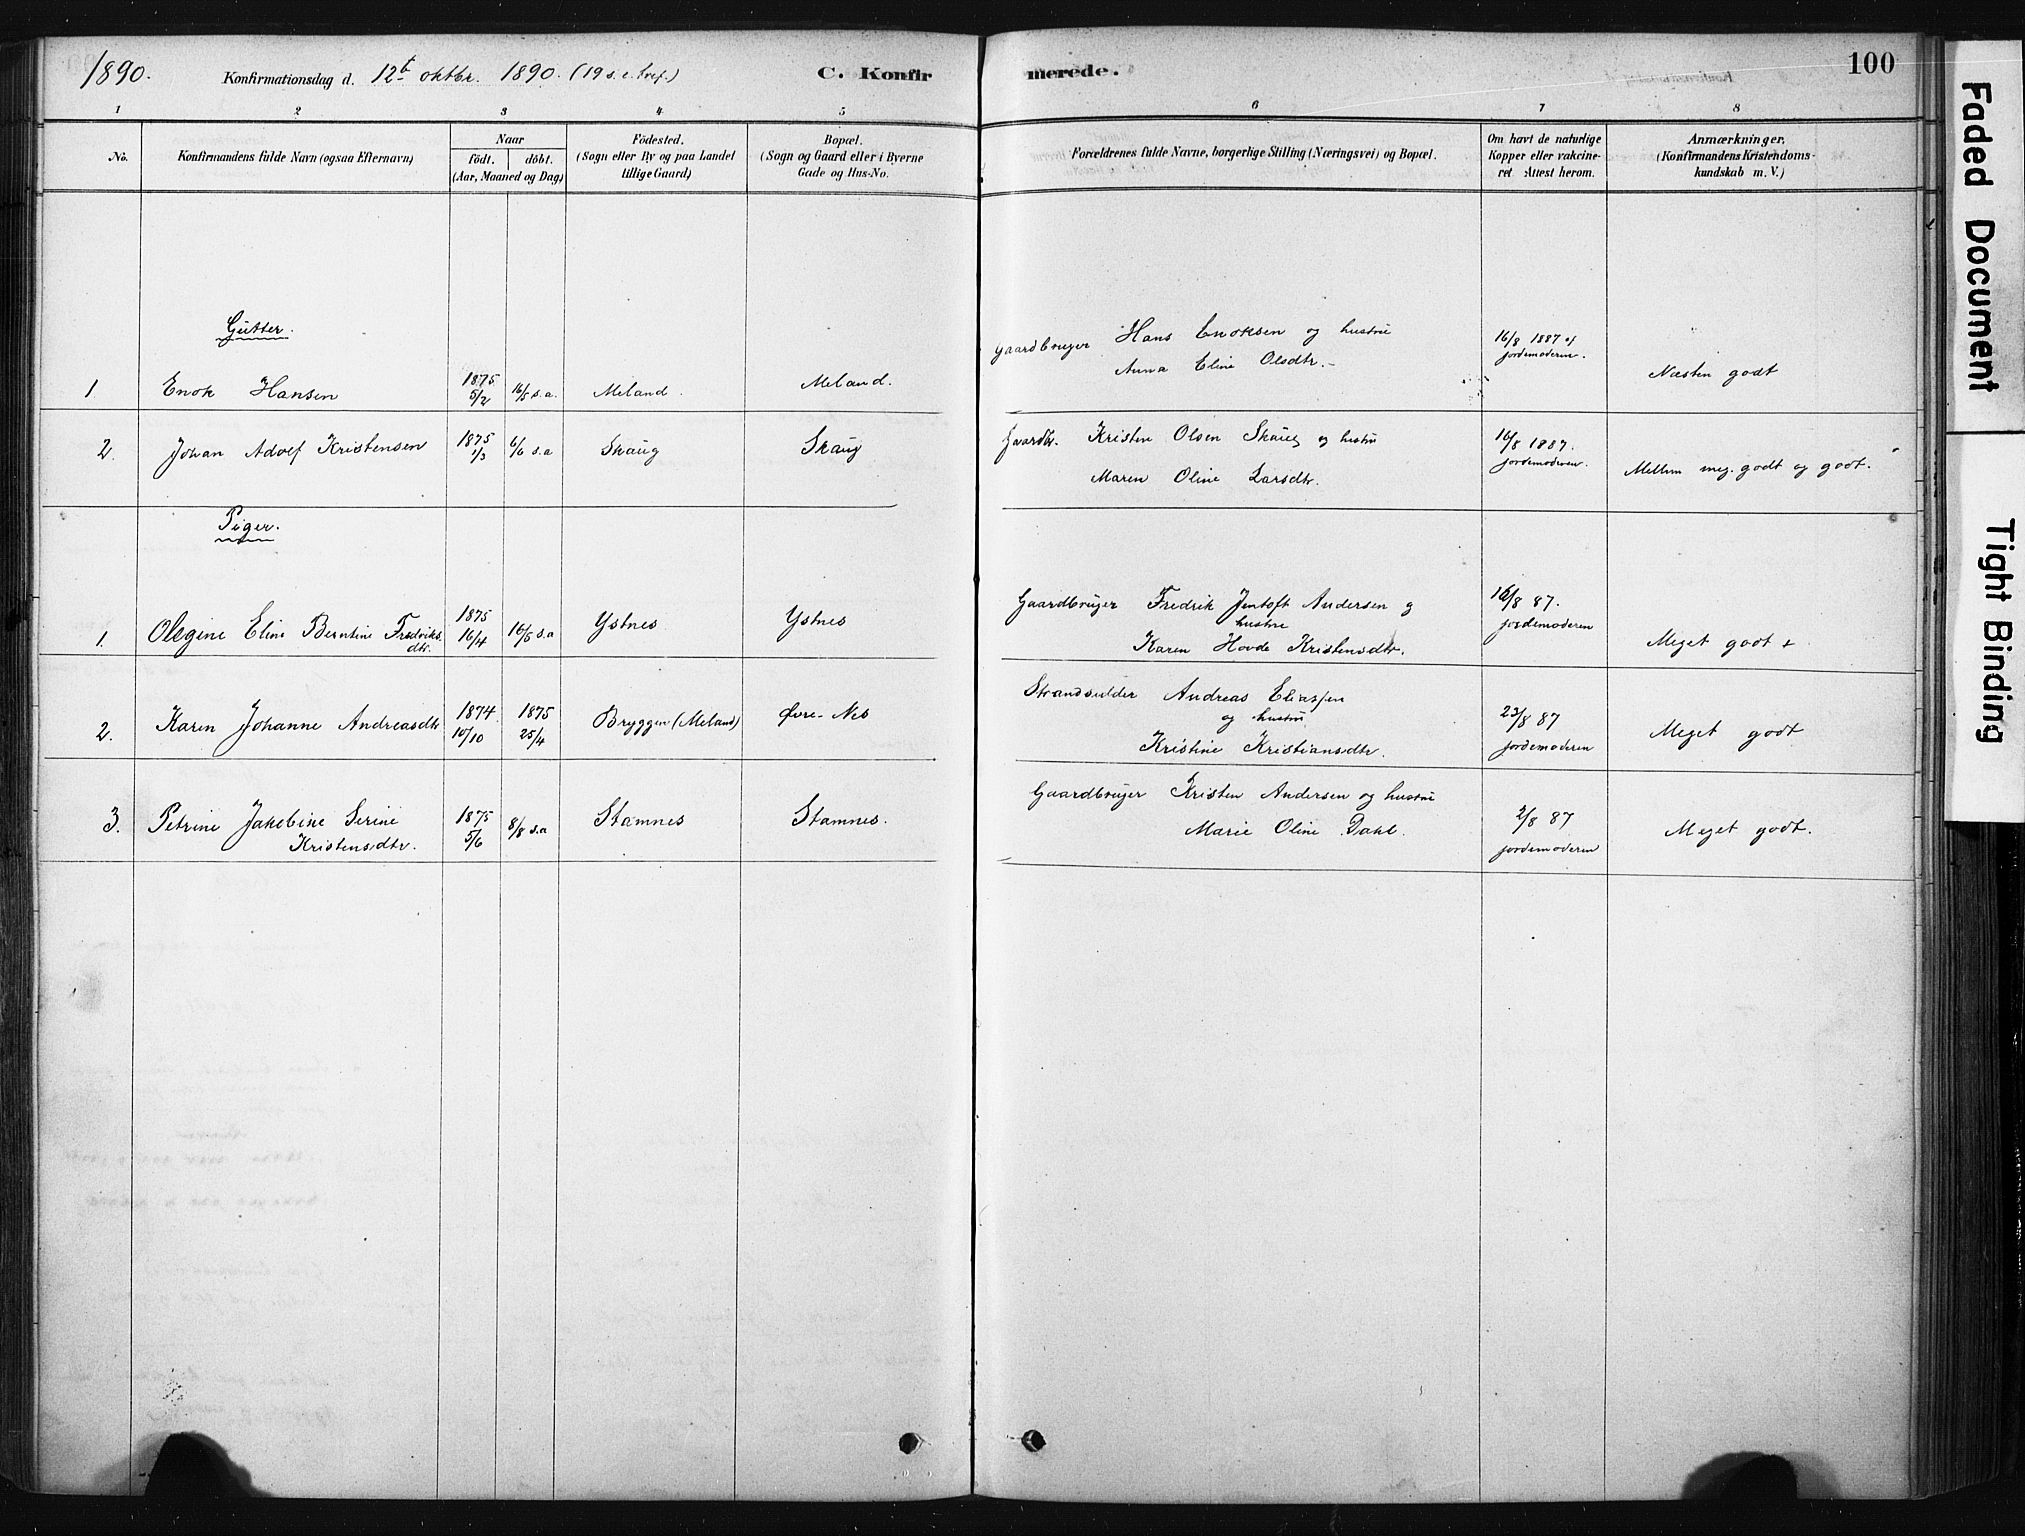 1890. Konfirmationsdag d. 12t oktbr. 1890. (19 s. e. tref.) C. Konfir merede. 100
1 2 3 4 5 6 7 8
No.
Konfirmandens fulde Navn (ogsaa Efternavn)
Naar
födt. döbt.
(Aar, Maaned og Dag)
Födested.
(Sogn eller By og paa Landet
tillige Gaard)
Bopæl.
(Sogn og Gaard eller i Byerne
Gade og Hus-No.
Forældrenes fulde Navne, borgerlige Stilling (Næringsvei) og Bopæl.
Om havt de naturlige
Kopper eller vakcine-
ret. Attest herom.
Anmærkninger.
(Konfirmandens Kristendoms-
kundskab m. V.)
Gutter.
1 Enok Hansen 1875 5/2 16/5 s.a. Meland. Meland.
gaardbruger Hans Enoksen og hustru
Anna Eline Olsdtr.
16/8 1887 af
jordemoderen.
Næsten godt
2. Johan Adolf Kristensen 1875 1/3 6/6 s.a Skaug Skaug
Gaardbr. Kristen Olsen Skaug og hustru
Maren Oline Larsdtr.
16/8 1887.
jordemoderen.
Mellem meg. godt og godt.
Piger.
1. Olegine Eline Berntine Fredriks
dtr.
1875 16/4 16/5 s.a Ystnes Ystnes
Gaardbruger Fredrik Jentoft Andersen og
hustru
Karen Hovde Kristensdtr.
16/8 87.
jordemoderen
Meget godt +
2. Karen Johanne Andreasdtr 1874 10/10 1875 25/4 Bryggen (Meland) Øvre-Nes
Strandsidder Andreas Eliassen
og hustru
Kristine Kristiansdtr.
23/8 87
jordemoderen
Meget godt
3. Petrine Jakobine Serine
Kristensdtr.
1875 5/6 8/8 s.a Stamnes Stamnes.
Gaardbruger Kristen Andersen og hustru
Marie Oline Dahl.
2/8 87
jordemoderen
Meget godt.
Faded Document
Tight Binding